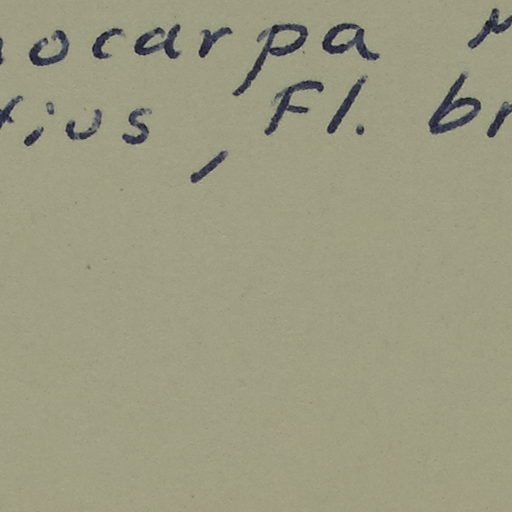 ocarpa
ius, Fl. br